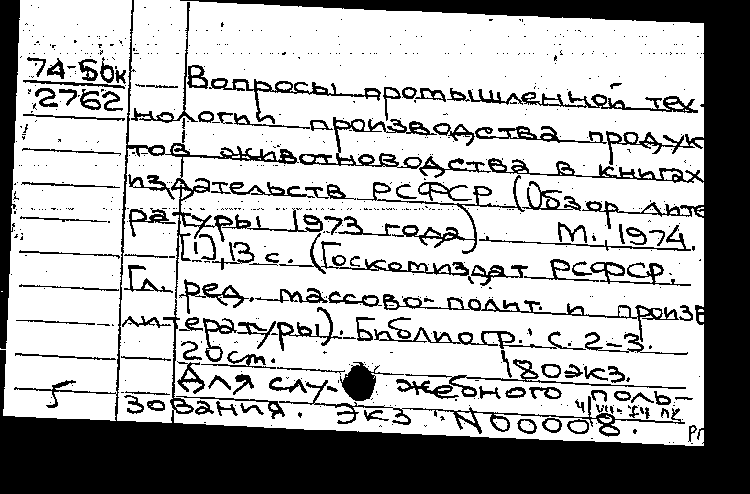 74-50к
2762
Вопросы промышленной тех-
нологии производства продук
тов животноводства в книгах
издательств РСФСР (Обзор лите
ратуры 1973 года). М., 1974.
[1], 13 с. (Госкомиздат РСФСР.
Гл. ред. массово-полит. и произв
литературы). Библиогр.: с. 2-3.
20 см. 180 экз.
Для слу- жебного поль-
зования. Экз N00008.
5